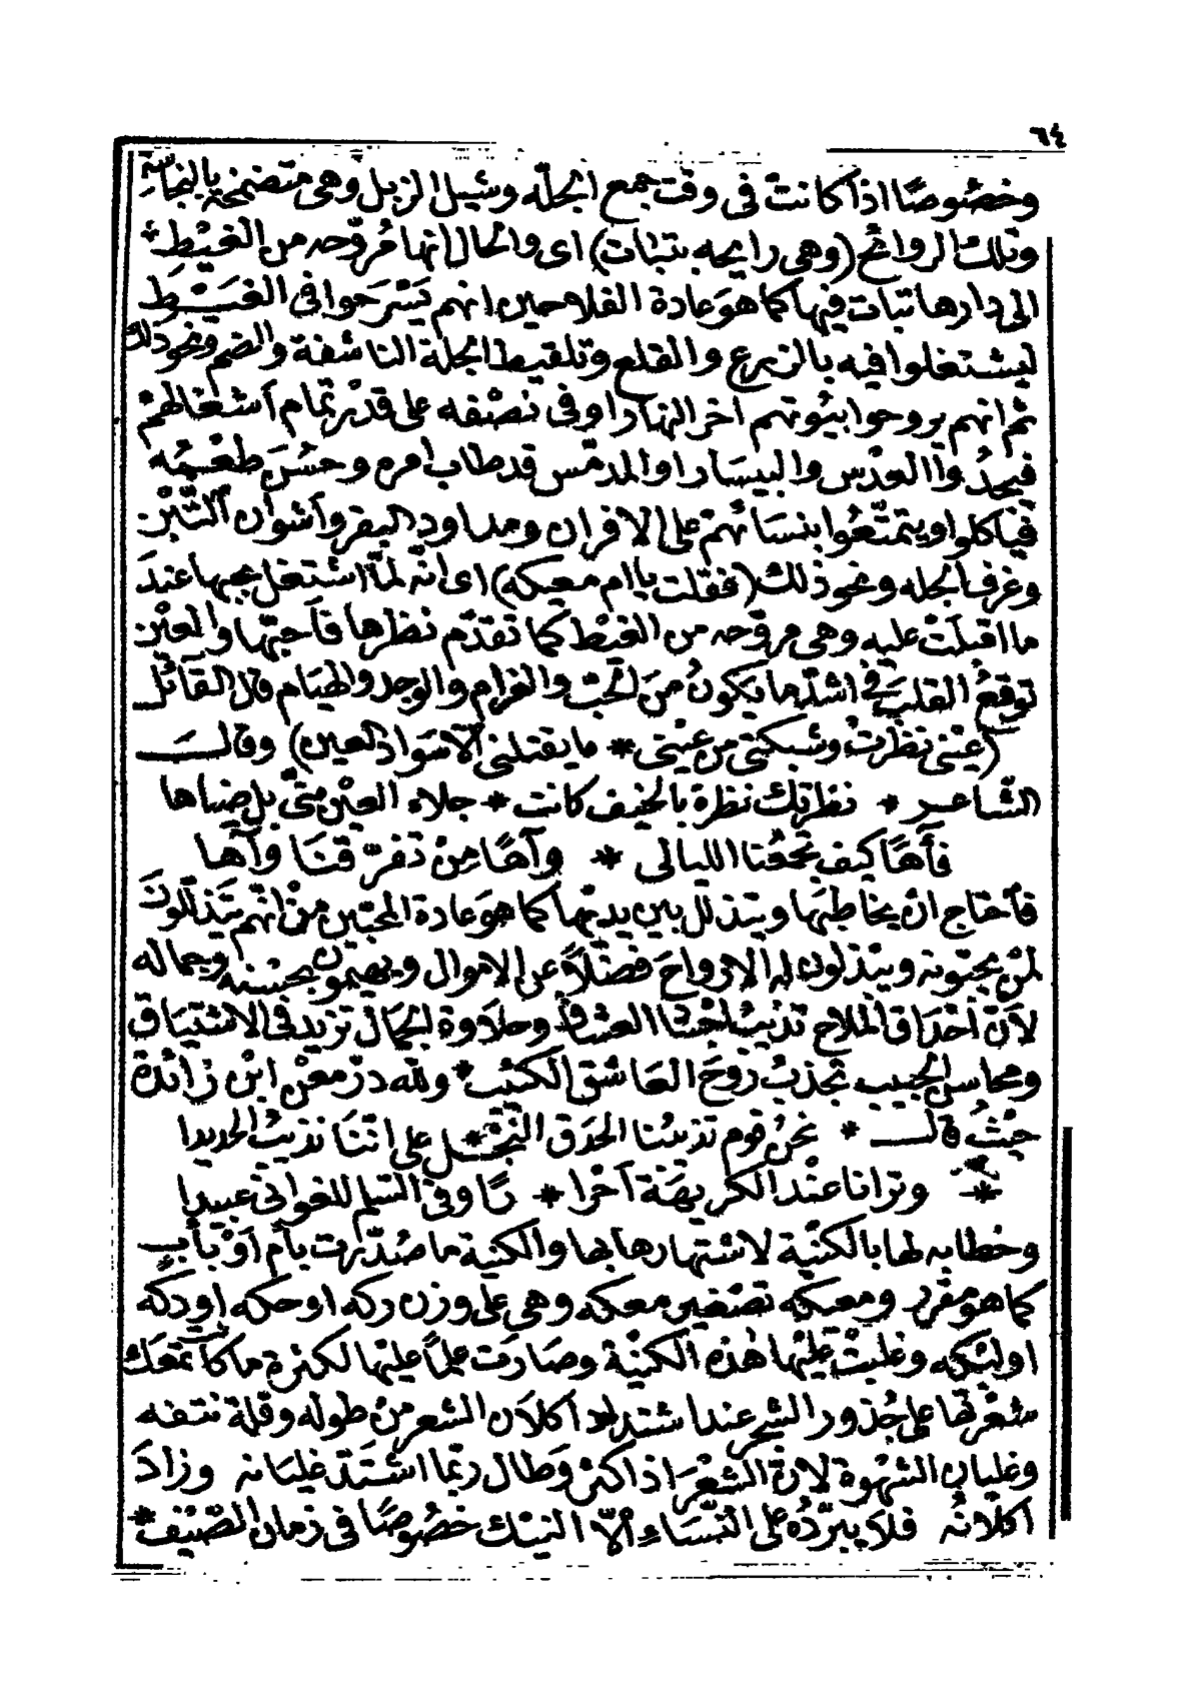 ٦٤
وخصُوصًا اذا كانت فى وقت جمع الجلّه وشيل الزبل وهى متضمخة بالنجاسَهِ
وتلك الروائح (وهى رايحه بتبات) اى والحال انها مُروّحه من الغيْطِ *
الى دارها تبات فيها كما هوَ عادة الفلاحين انهم يَسْرَحوا فى الغيَـْـط
ليشتغلوا فيه بالزرع والقلع وتلقيط الجلّة الناشفة والضم ونحو ذلك
ثم انهم يروحوا بيُوتهم اخر النهار او فى نصْفه على قدْر تمام اَشغالهمْ
فيجدُوا العدْس والبيسَار او المدمّس قد طاب امره وحسُنَ طعْمُه
فياكلوا ويتمتّعُوا بنسَائهمْ على الافران ومداود البقر واَشوان التِّبْن
وغرف الجله ونحو ذلك (فقلت يا ام معيكه) اى انّه لمّا اشتغل بحبها عندَ
ما اقبلَتْ عليه وهى مروّحه من الغيْط كما تقدّم نظرها فاَحبّها والعيْن
توقعُ القلبَ فى اشدّ ما يَكونُ منَ الحُبّ والغرام والوجد والهيَام قال القاَئل
(عيْنى نظرتْ وشبكتنى من عيْنى * ما يقتلنى الّا سَواد العين) وقالــَـ
الشاعـر * نظرتك نظرة بالخيف كانت * جلاء العيْن منّى بل ضياها
فآهًا كيف تجمعُنا الليالى * وآهًا مِنْ تفرّقنَا وآها
فاَحتاج ان يخاطبَها ويتذلل بين يديْها كما هوَ عادة المحبّين منْ انّهم يتَذلّلونَ
لمنْ يحبّونه ويبْذلون له الارواحَ فضْلاً عن الاموال ويهيمون بحسْنه وبجماله
لاَنّ اَحْدَاق الملاح تذيبُ اَحْشا العشاق وحلاوة الجمال تزيد فى الاشتياق
ومحاسن الحبيب تجذبُ رُوحَ العَاشق الكئيب * ولله درّ معْن ابْن زائدة
حيْثُ قالــ * نحنُ قوم تذيبُنا الحدَق النّجْـل على انّنَا نذيبُ الحديدا
* وترانا عنْد الكريهَة اَحْرا * رًا وفى السّلم للغوانى عبيدا
وخطابه لها بالكنْيَة لاشتهارها بها والكنية ما صُدّرت بأم اَوْ بأبٍ
كما هو مقرر ومعيكه تصْغير معكه وهى على وزن ركه او حكه او دكه
او لبْكه وغلبتْ عليْها هٰذه الكنْيَة وصَارَت علَماً عليْها لكثرة ما كاَنَت تمعَك
شعْرتها على جُذور الشجر عند اشتداد اكلان الشعر منْ طوله وقلة نتفه
وغليان الشهْوة لانّ الشعْرَ اذا كثرَ وَطال ربّما اشتَدّ غليَانه وزادَ
اكلَانُه فلا يبرّدُه على النّسَاءِ الّا النيْك خصُوصًا فى زمان الصّيْف *